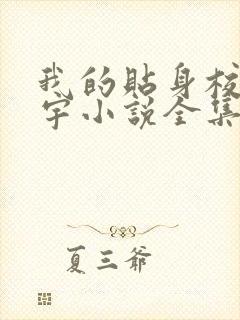 我的貼身校
宇小說全集
夏三爺